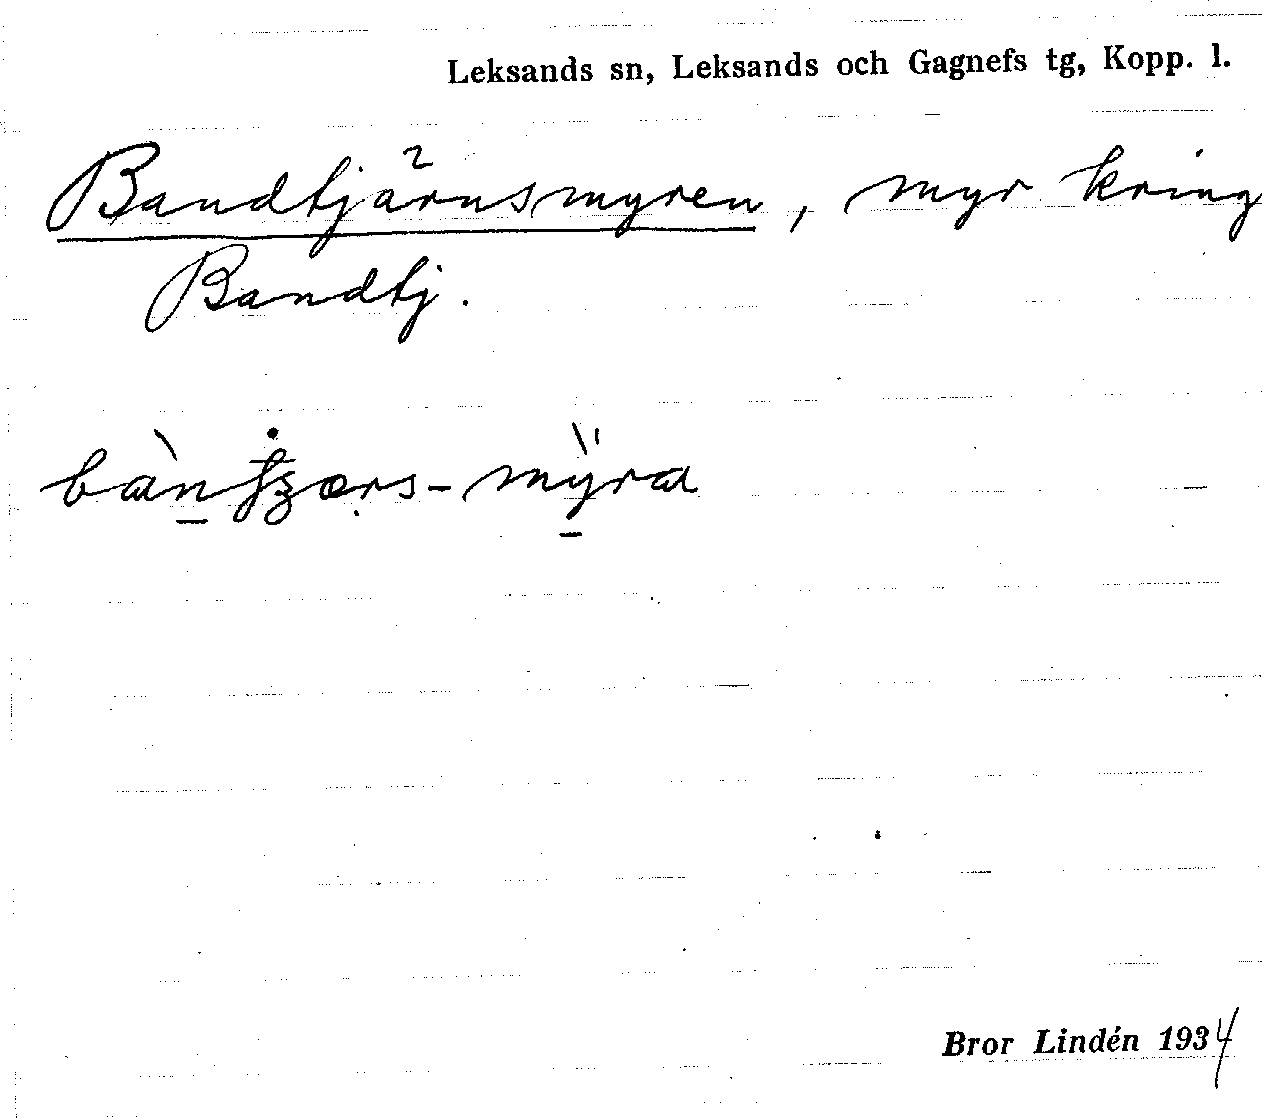 Leksands sn, Leksands och Gagnefs tg, Kopp. l.
Bandtjärnsmyren, myr kring
Bandtj.
Bror Lindén 1934